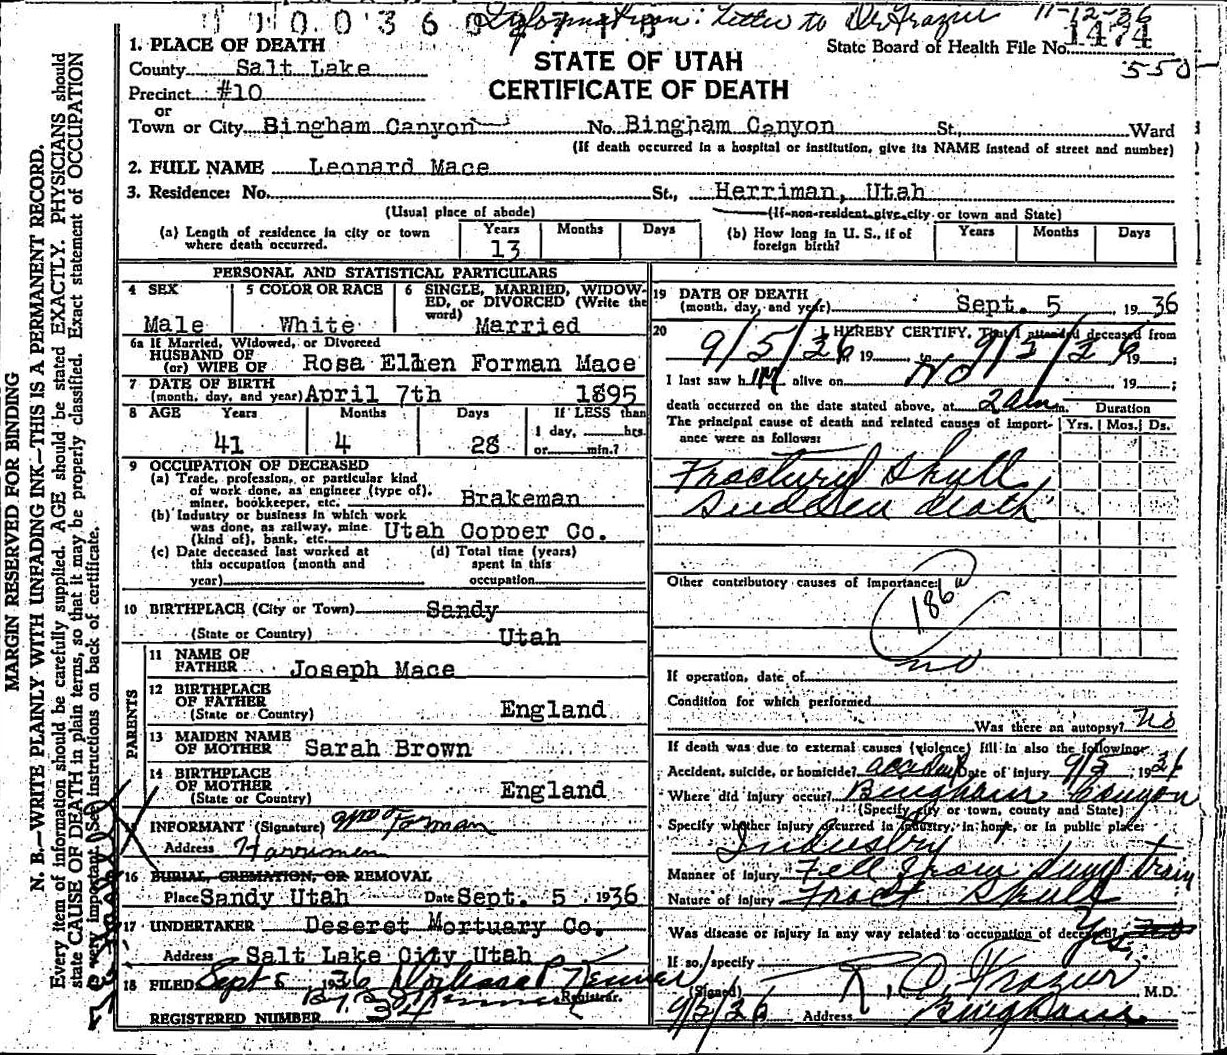 Information: Letter to Dr Frazier 11-12-36
1. PLACE OF DEATH
County Salt Lake
Precinct #10
or
Town or City Bingham Canyon No. Bingham Canyon St., Ward
(If death occurred in a hospital or institution, give its NAME instead of street and number)
STATE OF UTAH
CERTIFICATE OF DEATH
State Board of Health File No. 1474
550
2. FULL NAME Leonard Mace
3. Residence: No. St., Herriman, Utah
(Usual place of abode) (If non-resident give city or town and State)
(a) Length of residence in city or town where death occurred. Years 13 Months Days
(b) How long in U. S., if of foreign birth? Years Months Days
PERSONAL AND STATISTICAL PARTICULARS
4 SEX Male
5 COLOR OR RACE White
6 SINGLE, MARRIED, WIDOWED, or DIVORCED (Write the word) Married
6a If Married, Widowed, or Divorced
HUSBAND OF
(or) WIFE OF Rosa Ellen Forman Mace
7 DATE OF BIRTH
(month, day, and year) April 7th 1895
8 AGE Years 41 Months 4 Days 28 If LESS than 1 day, hrs. or min.?
9 OCCUPATION OF DECEASED
(a) Trade, profession, or particular kind
of work done, as engineer (type of),
miner, bookkeeper, etc. Brakeman
(b) Industry or business in which work
was done, as railway, mine
(kind of), bank, etc. Utah Copper Co.
(c) Date deceased last worked at this occupation (month and year)
(d) Total time (years) spent in this occupation
10 BIRTHPLACE (City or Town) Sandy
(State or Country) Utah
PARENTS
11 NAME OF FATHER Joseph Mace
12 BIRTHPLACE OF FATHER
(State or Country) England
13 MAIDEN NAME OF MOTHER Sarah Brown
14 BIRTHPLACE OF MOTHER
(State or Country) England
INFORMANT (Signature) Forman
Address Harrimen
16 BURIAL, CREMATION, OR REMOVAL
Place Sandy Utah Date Sept. 5, 1936
17 UNDERTAKER Deseret Mortuary Co.
Address Salt Lake City Utah
18 FILED Sept 5 1936
Registrar.
REGISTERED NUMBER 34
19 DATE OF DEATH
(month, day, and year) Sept. 5 , 1936
20 I HEREBY CERTIFY, That I attended deceased from
9/5/36 19 to 9/5/36 19 ;
I last saw him alive on No , 19 ;
death occurred on the date stated above, at 2am m.
The principal cause of death and related causes of importance were as follows:
Duration
Yrs. Mos. Ds.
Fractured Skull
Sudden death
Other contributory causes of importance:
186a
no
If operation, date of
Condition for which performed
Was there an autopsy? No
If death was due to external causes (violence) fill in also the following:
Accident, suicide, or homicide? accident Date of injury 9/5 , 1936
Where did injury occur? Bingham Canyon
(Specify city or town, county and State)
Specify whether injury occurred in industry, in home, or in public place:
Industry
Manner of Injury Fell from dump train
Nature of Injury Fract Skull
Was disease or injury in any way related to occupation of deceased? Yes
If so, specify
(Signed) R. A. Frazier M.D.
9/5/36 Address Bingham
MARGIN RESERVED FOR BINDING
N. B.—WRITE PLAINLY WITH UNFADING INK—THIS IS A PERMANENT RECORD.
Every item of information should be carefully supplied. AGE should be stated EXACTLY. PHYSICIANS should
state CAUSE OF DEATH in plain terms, so that it may be properly classified. Exact statement of OCCUPATION
is very important. See instructions on back of certificate.